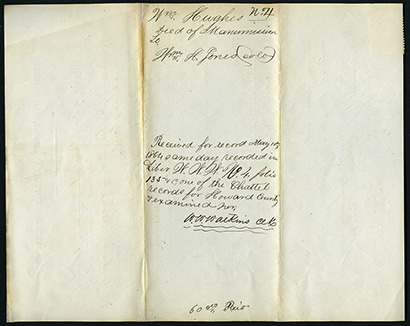 Wm. Hughes No. 4
Deed of Manumission
to
Wm. H. Jones (cold)
Received for record May
1864 same day recorded in
Liber W. W. W. No 4 folio
135 &c one of the Chattel
records for Howard County
& examined per,
W W Watkins Clk
60 cts Paid